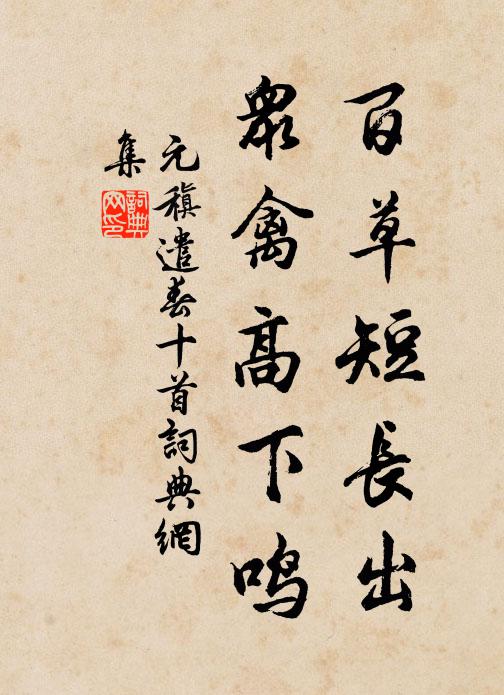 百草短長出
眾禽高下鳴
元稹遣春十首詞典網
集
詞典
网印